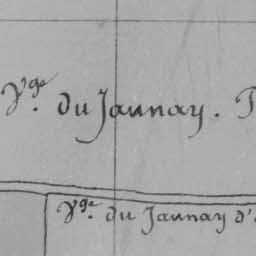 Vge. du Jaunay. T
Vge. du Jaunay d'